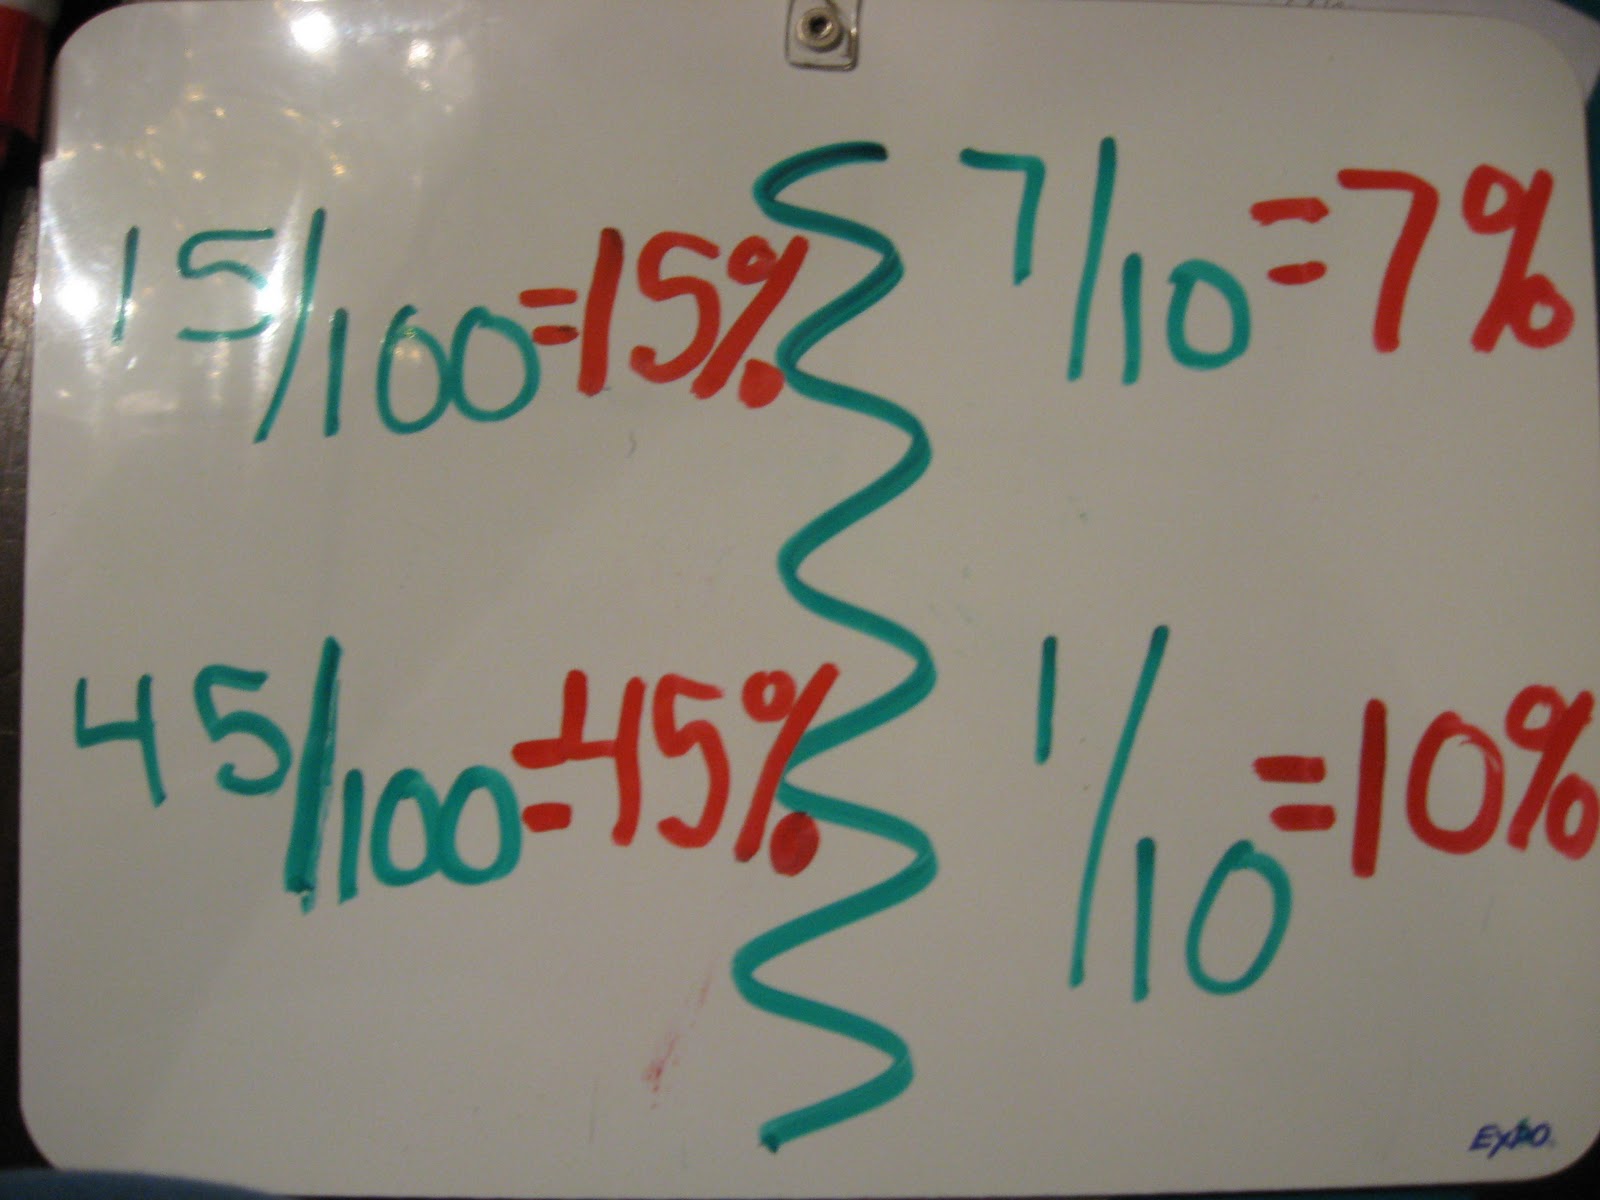 15/100=15%
45/100=45%
7/10=7%
1/10=10%
EXPO